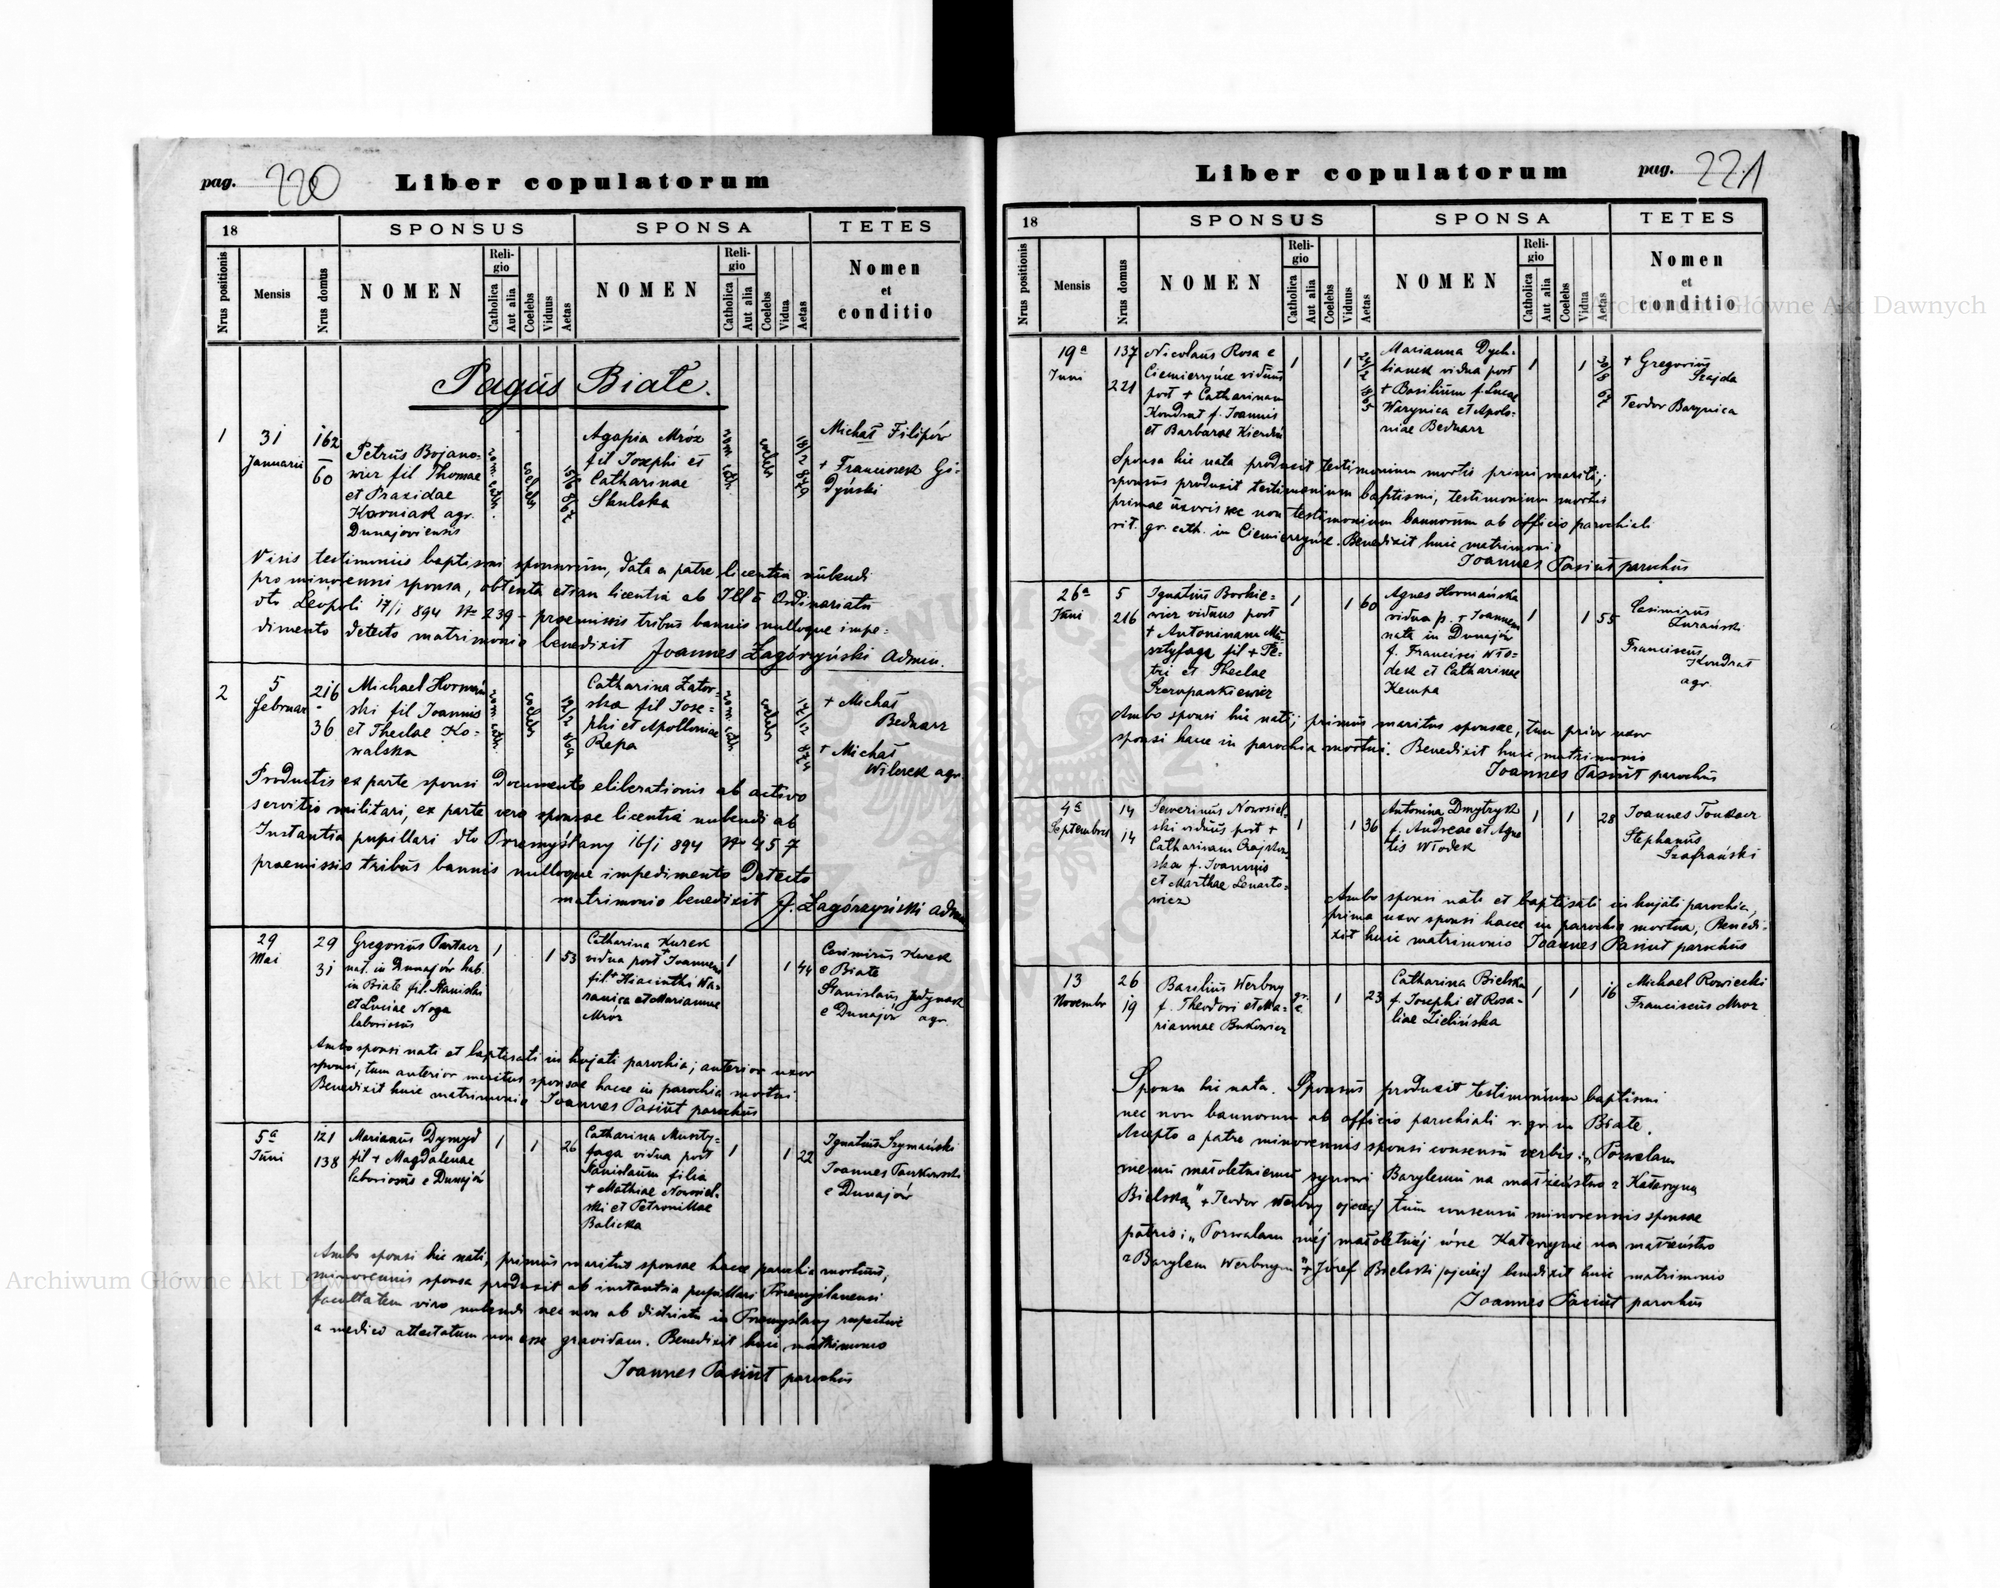 pag. 220 Liber copulatorum
18 SPONSUS SPONSA TETES
Nrus positionis Mensis Nrus domus NOMEN Religio Catholica Aut alia Coelebs Viduus Aetas NOMEN Religio Catholica Aut alia Coelebs Vidua Aetas Nomen et conditio
Pagus Białe.
1
31
Januarii
162
60
Petrus Bojano-
wicz fil Thomae
et Praxidae
Korniak agr.
Dunajoviensis
rom. cath.
coelebs
Agapia Mróz
fil Josephi et
Catharinae
Skulska
rom. cath.
coelebs
Michał Filipów
+ Franciszek Gó-
dyński
Visis testimoniis baptismi sponsorum, data a patre licentia nubendi
pro minorenni sponsa, obtenta etiam licentia ab Ill o Ordinariatu
dto Leopoli 17/1 894 No 239 - praemissis tribus bannis nulloque impe-
dimento detecto matrimonio benedixit Joannes Zagórzyński Admin.
2
5
Februar
216
36
Michael Hormań-
ski fil Joannis
et Theclae Ko-
walska
rom. cath.
coelebs
Catharina Zator-
ska fil Jose-
phi et Apolloniae
Repa
rom. cath.
coelebs
+ Michał
Bednarz
+ Michał
Wilczek agr.
Productis ex parte sponsi Documento eliberationis ab activo
servitio militari, ex parte vero sponsae licentia nubendi ab
Instantia pupillari dto Przemyślany 16/1 894 No 457
praemissis tribus bannis nulloque impedimento Detecto
matrimonio benedixit J. Zagórzyński Adm
29
Mai
29
31
Gregorius Tartacz
nat. in Dunajów hab.
in Białe fil. Stanislai
et Luciae Noga
laboriosus
1 1 53
Catharina Kurek
vidua post + Joannem
fil + Hiacinthi Wa-
ranica et Mariannae
Mróz
1 1 44
Casimirus Kurek
e Białe
Stanislaus Jedynak
e Dunajów agr.
Ambo sponsi nati et baptisati in hujati parochia; anterior uxor
sponsi, tum anterior maritus sponsae hacce in parochia mortui.
Benedixit huic matrimonio Joannes Pasiut parochus
5a
Juni
121
138
Marianus Dymyd
fil + Magdalenae
laboriosus e Dunajów
1 1 26
Catharina Muszty-
faga vidua post
Stanislaum filia
+ Mathiae Nowosiel-
ski et Petronillae
Balicka
1 1 22
Ignatius Szymański
Joannes Tarkowski
e Dunajów
Ambo sponsi hic nati, primus maritus sponsae hacce parochia mortuus,
minorennis sponsa produxit ab instantia pupillari Przemyślanensi
facultatem viro nubendi nec non ab districtu in Przemyślany respective
a medico attestatum non esse gravidam. Benedixit huic matrimonio
Joannes Pasiut parochus
Liber copulatorum pag. 221
18 SPONSUS SPONSA TETES
Nrus positionis Mensis Nrus domus NOMEN Religio Catholica Aut alia Coelebs Viduus Aetas NOMEN Religio Catholica Aut alia Coelebs Vidua Aetas Nomen et conditio
19a
Juni
137
221
Nicolaus Rosa e
Ciemierzyńce viduus
post + Catharinam
Kondrat f. Joannis
et Barbarae
1 1
Marianna Dych-
vidua post
+ Basilium f. Lucae
Warynica et Apolo-
niae Bednarz
1 1
+ Gregorius
Szajda
Teodor Barynica
Sponsa hic nata produxit testimonium mortis primi mariti;
sponsus produxit testimonium baptismi, testimonium mortis
primae uxoris nec non testimonium bannorum ab officio parochiali
rit. gr. cath. in Ciemierzyńce. Benedixit huic matrimonio
Joannes Pasiut parochus
26a
Juni
5
216
Ignatius Borkie-
wicz viduus post
+ Antoninam Mu-
sztyfaga fil + Pe-
tri et Theclae
1 1 60
Agnes Hormańska
vidua p. + Joannem
nata in Dunajów
f. Francisci Wło-
dek et Catharinae
Kempa
1 1 55
Casimirus
Żurański
Franciscus
Kondrat
agr.
Ambo sponsi hic nati; primus maritus sponsae, tum prior uxor
sponsi hacce in parochia mortui. Benedixit huic matrimonio
Joannes Pasiut parochus
4a
Septembris
14
14
Severinus Nowosiel-
ski viduus post +
Catharinam
f. Joannis
et Marthae Lenarto-
wicz
1 1 36
Antonina Dmytryk
f. Andreae et Agne
tis Włodek
1 1 28
Joannes
Stephanus
Szafrański
Ambo sponsi nati et baptisati in hujati parochia,
prima uxor sponsi hacce in parochia mortua, Benedi-
xit huic matrimonio Joannes Pasiut parochus
13
Novembr
26
19
Basilius Werbny
f. Theodori et Ma-
riannae Bukowicz
gr. c. 1 23
Catharina Bielska
f. Josephi et Rosa-
liae Zielińska
1 1 16
Michael Rowiecki
Franciscus Mroz
Sponsa hic nata. Sponsus produxit testimonium baptismi
nec non bannorum ab officio parochiali r. gr. in Białe.
Accepto a patre minorennis sponsi consensu verbis: "Pozwalam
memu małoletniemu synowi Barylemu na małżeństwo z Kataryną
Bielską" + Teodor Werbny /ojciec/ tum consensu minorennis sponsae
patris: "Pozwalam mej małoletniej córce Katarzynie na małżeństwo
z Barylem Werbnym" + Józef Bielski /ojciec/ benedixit huic matrimonio
Joannes Pasiut parochus
Archiwum Główne Akt Dawnych
Archiwum Główne Akt Dawnych